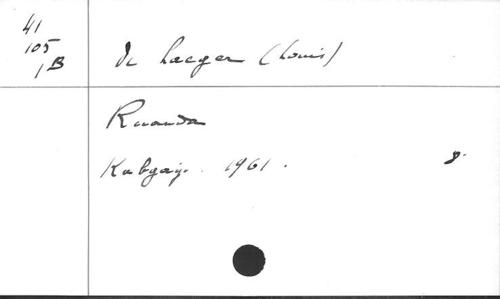 41
105
1B
De Lacger (Louis)
Ruanda
Kabgayi. 1961.
8°